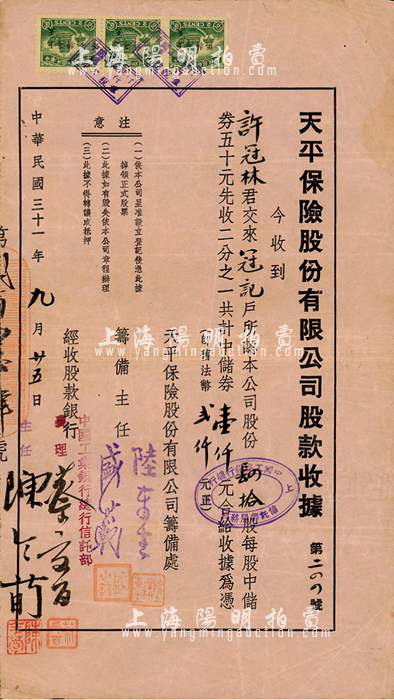 天平保險股份有限公司股款收據 第二〇〇號
今收到
許冠林君交來冠記戶所認本公司股份肆拾股每股中儲
券五十元先收二分之一共計中儲券壹仟元合給收據爲憑
折舊法幣貳仟元正
天平保險股份有限公司籌備處
籌備主任
注意
(一)俟本公司呈准設立登記後憑此據
掉領正式股票
(二)此據如有毀失依本公司章程辦理
(三)此據不得轉讓或抵押
經收股款銀行
中國工業銀行總行信託部
經理
主任
中華民國三十一年九月廿五日
2 CENTS
2 CENTS
2 CENTS
上海陽明拍賣
www.yangmingauction.com
上海陽明拍賣
www.yangmingauction.com
上海陽明拍賣
www.yangmingauction.com